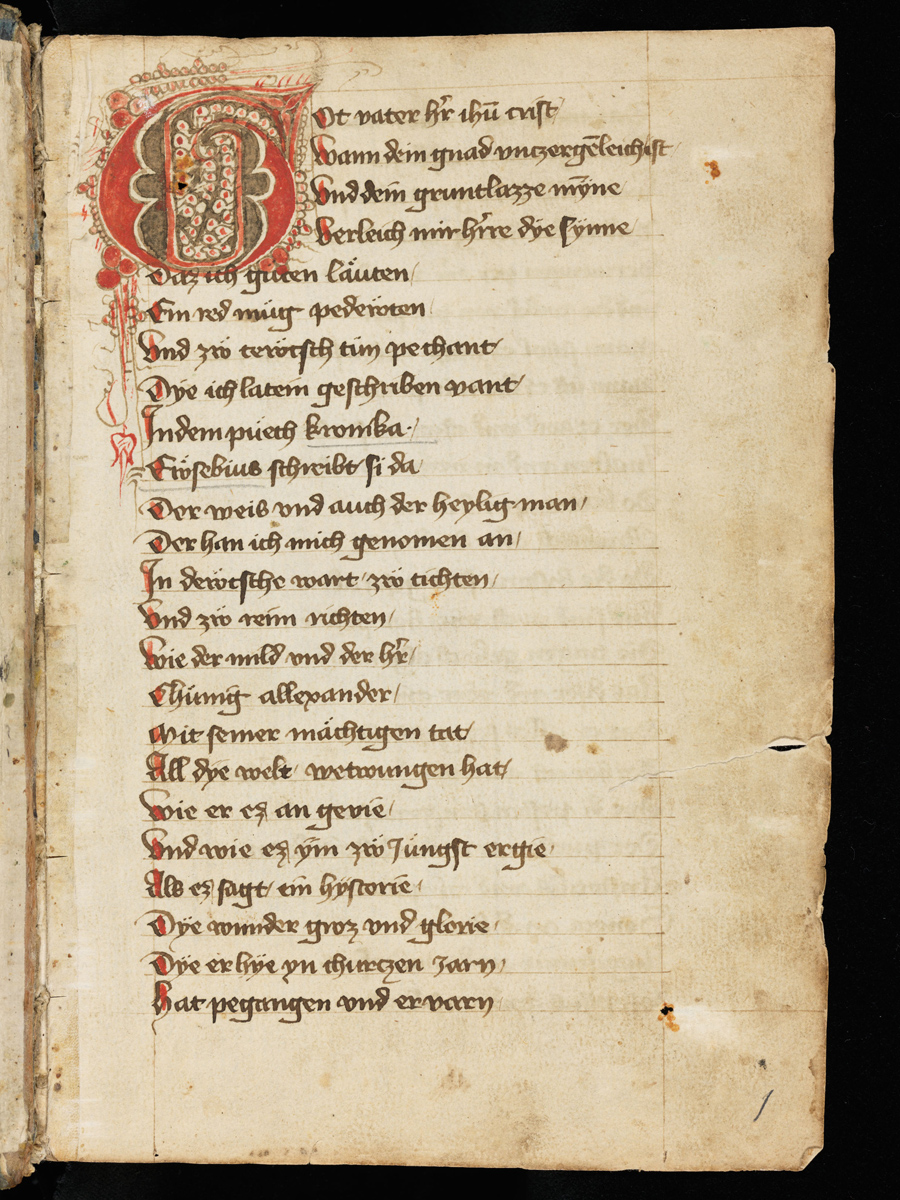 Got vater hr̄ ihū crist
Wann dein gnad vnczergēleich ist
Vnd dein gruntlazze mȳne
Verleich mir hr̄re dÿe sÿnne
Daz ich guten läuten
Ein red müg pedewten
Vnd zw tewtsch tün pechant
Dÿe ich latein geschriben vant
In dem püech kronika
Ewsebius schreibt si da
Der weis vnd auch der heylig man
Der han ich mich genomen an
In dewtsche wart zw tichten
Vnd zw reim richten
Wie der mild vnd der hr̄
Chünig allexander
Mit seiner mächtigen tat
All dÿe welt wetwungen hat
Wie er ez an gevie
Vnd wie ez ÿm zw Jüngst ergie
Als ez sagt ein hÿstorie
Dÿe wunder groz vnd glorie
Dÿe er hÿe yn churczen Jarn
Hat pegangen vnd ervarn
1